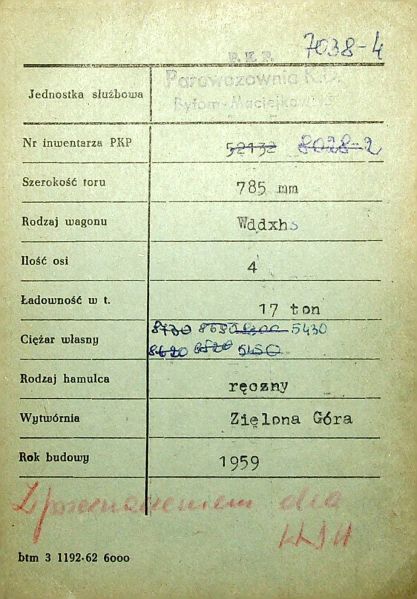 7038-4
P. K. P.
Parowozownia K.D.
Jednostka służbowa
Bytom-Maciejkowice
Nr inwentarza PKP 52132 8028-2
Szerokość toru 785 mm
Rodzaj wagonu Wddxhs
Ilość osi 4
Ładowność w t. 17 ton
8730 5430
Ciężar własny
8620 8520 5450
Rodzaj hamulca ręczny
Wytwórnia Zielona Góra
Rok budowy 1959
Z przeznaczeniem dla
btm 3 1192-62 6000